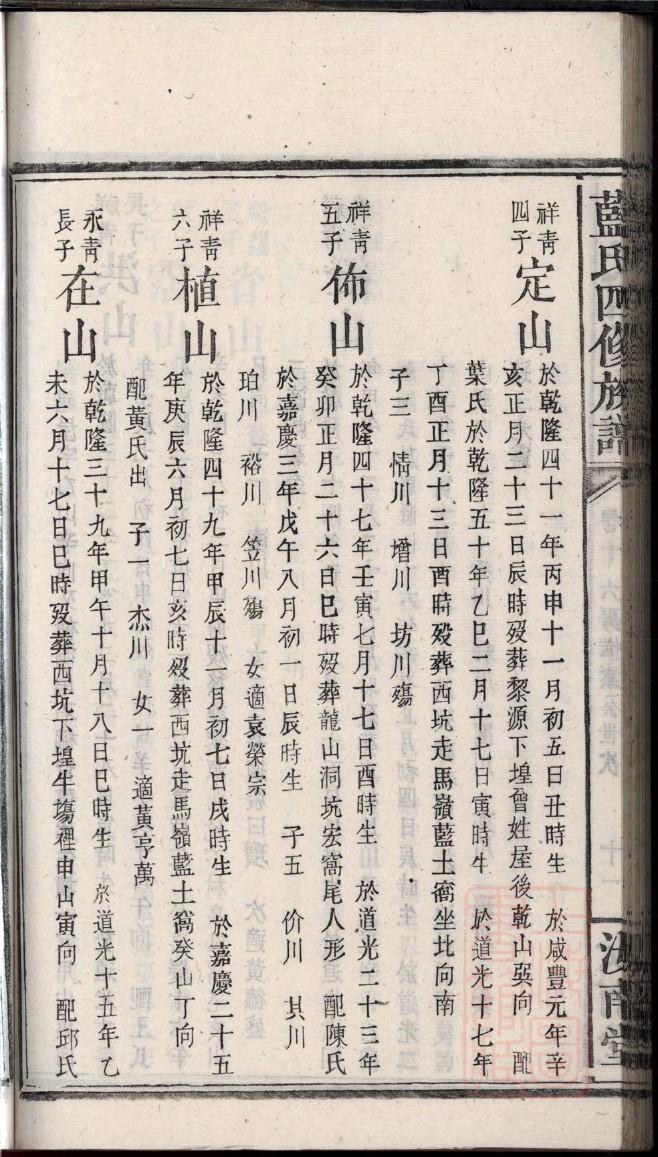 藍氏四修族譜
汝南堂
祥青
四子
定山
於乾隆四十一年丙申十一月初五日丑時生 於咸豐元年辛
亥正月二十三日辰時歿葬黎源下堭曾姓屋後乾山巽向 配
葉氏於乾隆五十年乙巳二月十七日寅時生 於道光十七年
丁酉正月十三日酉時歿葬西坑走馬嶺藍土窩坐北向南
子三 情川 增川 坊川殤
祥青
五子
佈山
於乾隆四十七年壬寅七月十七日酉時生 於道光二十三年
癸卯正月二十六日巳時歿葬龍山洞坑宏窩尾人形 配陳氏
於嘉慶三年戊午八月初一日辰時生 子五 价川 其川
珀川 裕川 笠川殤 女適袁榮宗
祥青
六子
植山
於乾隆四十九年甲辰十一月初七日戌時生 於嘉慶二十五
年庚辰六月初七日亥時歿葬西坑走馬嶺藍土窩癸山丁向
配黃氏出 子一 杰川 女一 適黃亨萬
永青
長子
在山
於乾隆三十九年甲午十月十八日巳時生 於道光十五年乙
未六月十七日巳時歿葬西坑下堭牛塲裡申山寅向 配邱氏